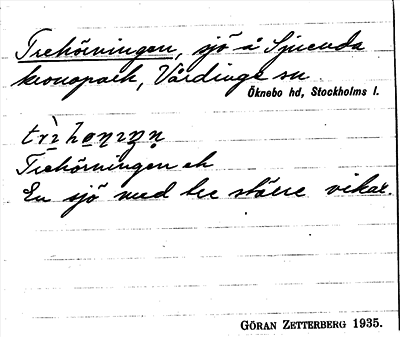 Trehörningen, sjö å Sjuenda
kronopark, Vårdinge sn
Öknebo hd, Stockholms l.
Trehörningen ek
En sjö med tre större vikar.
GÖRAN ZETTERBERG 1935.